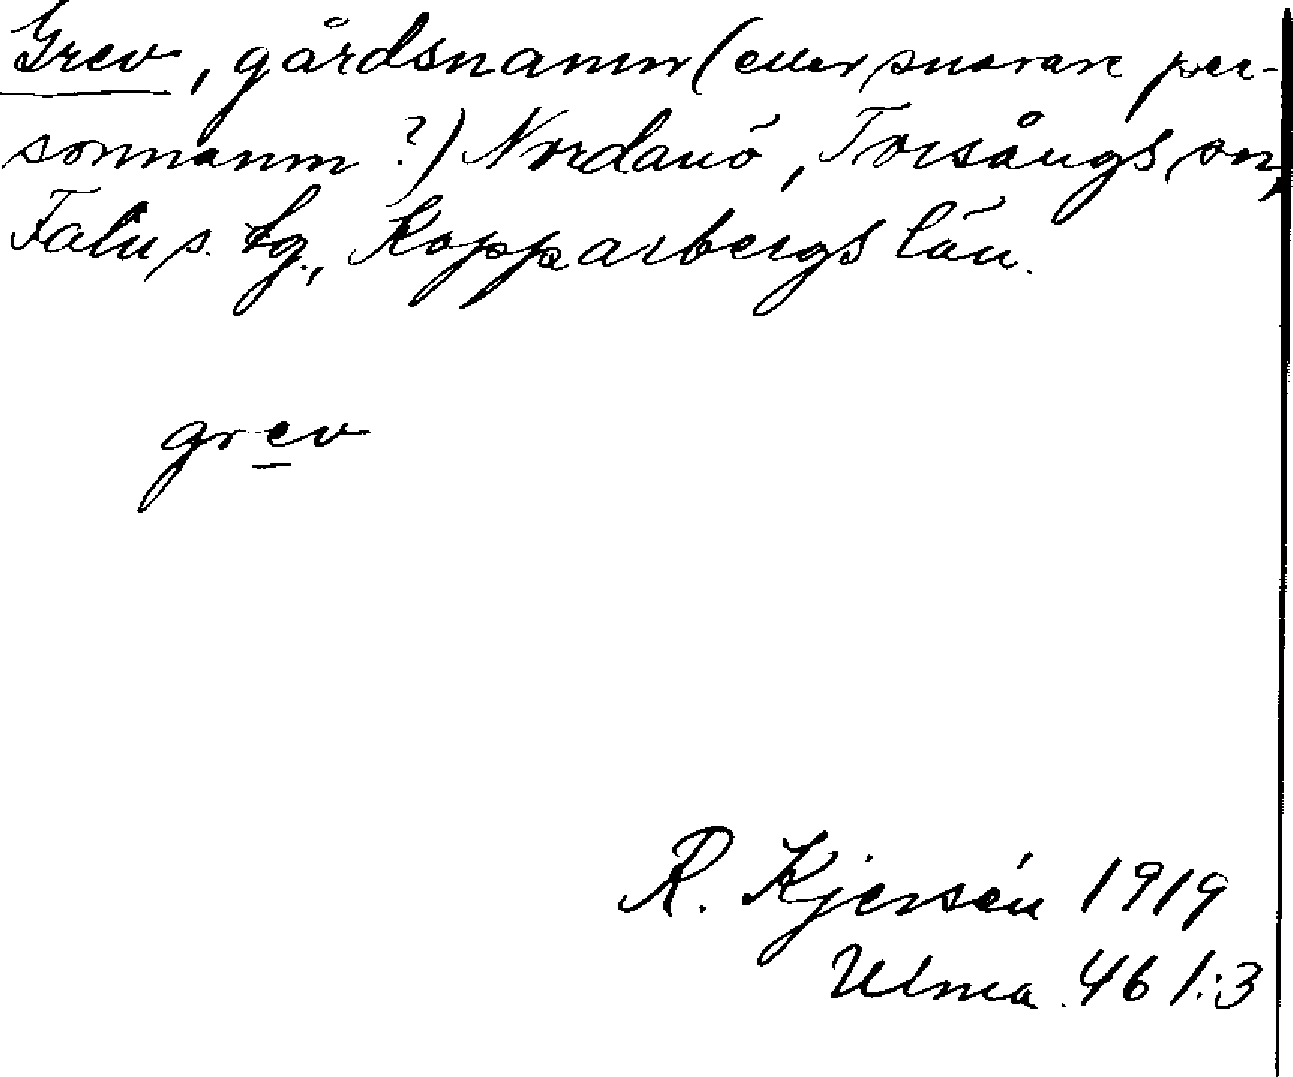 Grev, gårdsnamn (eller snarare per-
sonnamn ?) Nordanö, Torsångs sn,
Falu s. tg., Kopparbergs län.
grev
R. Kjersén 1919
Ulma 461:3